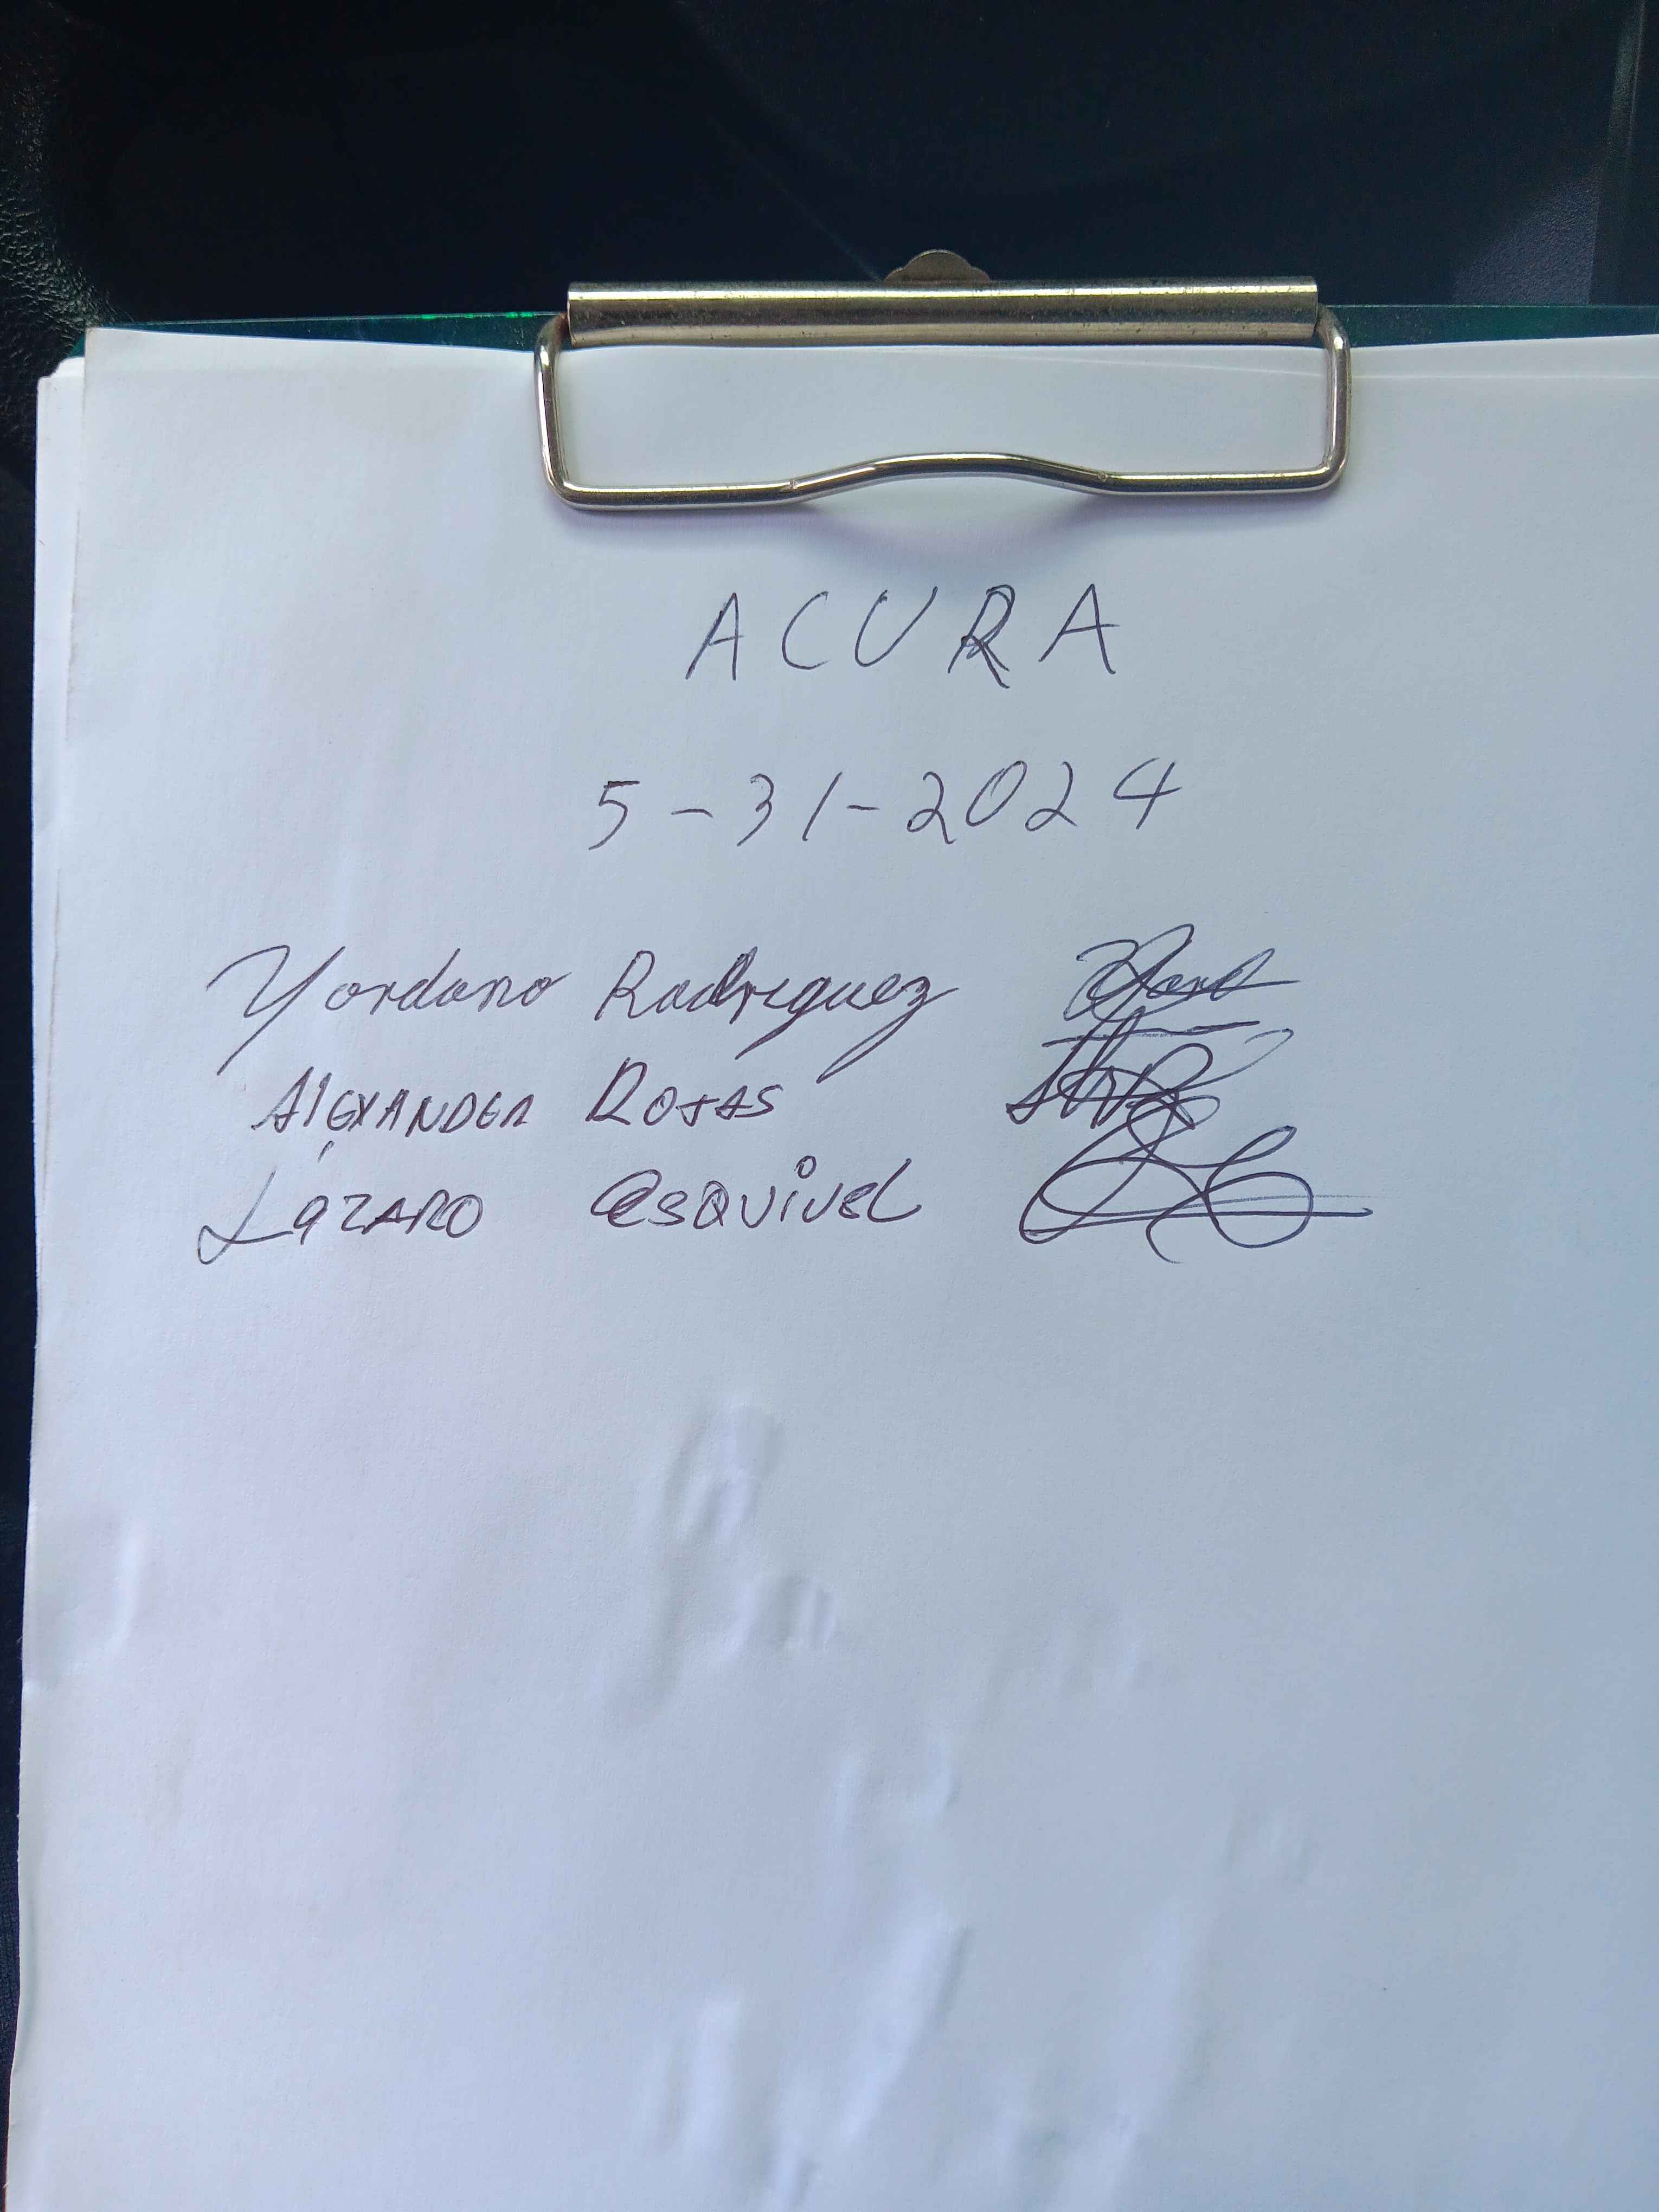 ACURA
5-31-2024
Yordano Rodriguez
AlexANDER ROJAS
LáZARO esQuivel